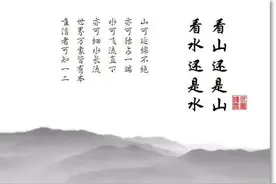 看山还是山
看水还是水
山可延绵不绝
亦可独占一端
水可飞流直下
亦可细水长流
世界万象皆有本
唯信者可知一二